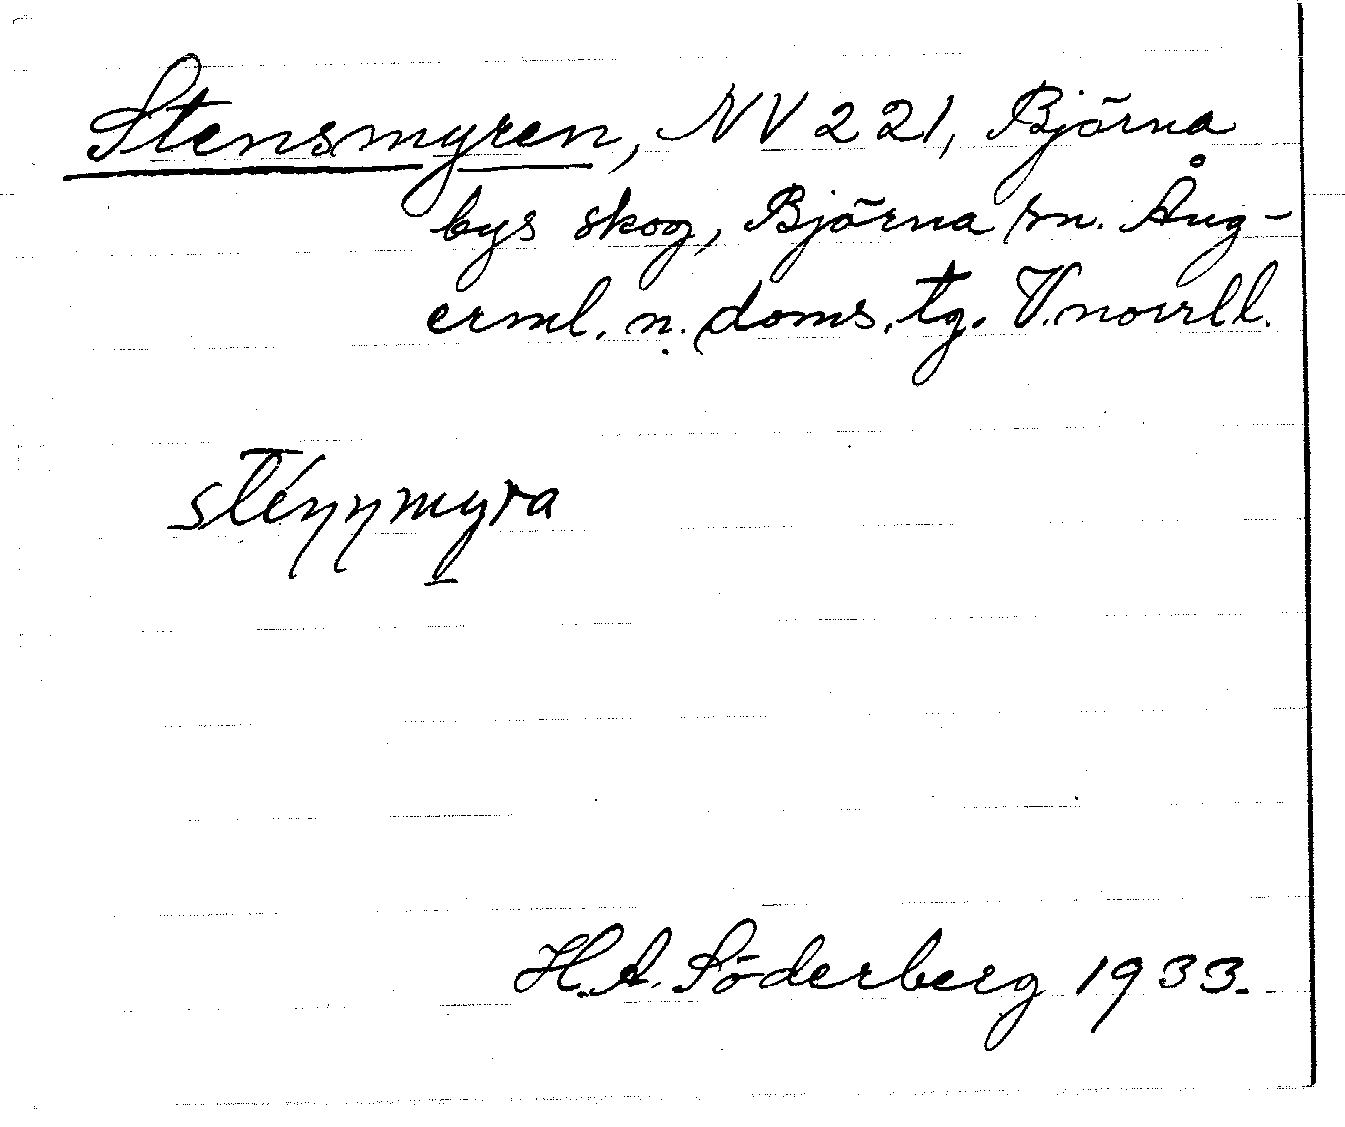 Stensmyren, NV 221, Björna
bys skog, Björna sn. Ång-
erml. n. doms. tg. V.norrll.
sténnmyra
H.A. Söderberg 1933.